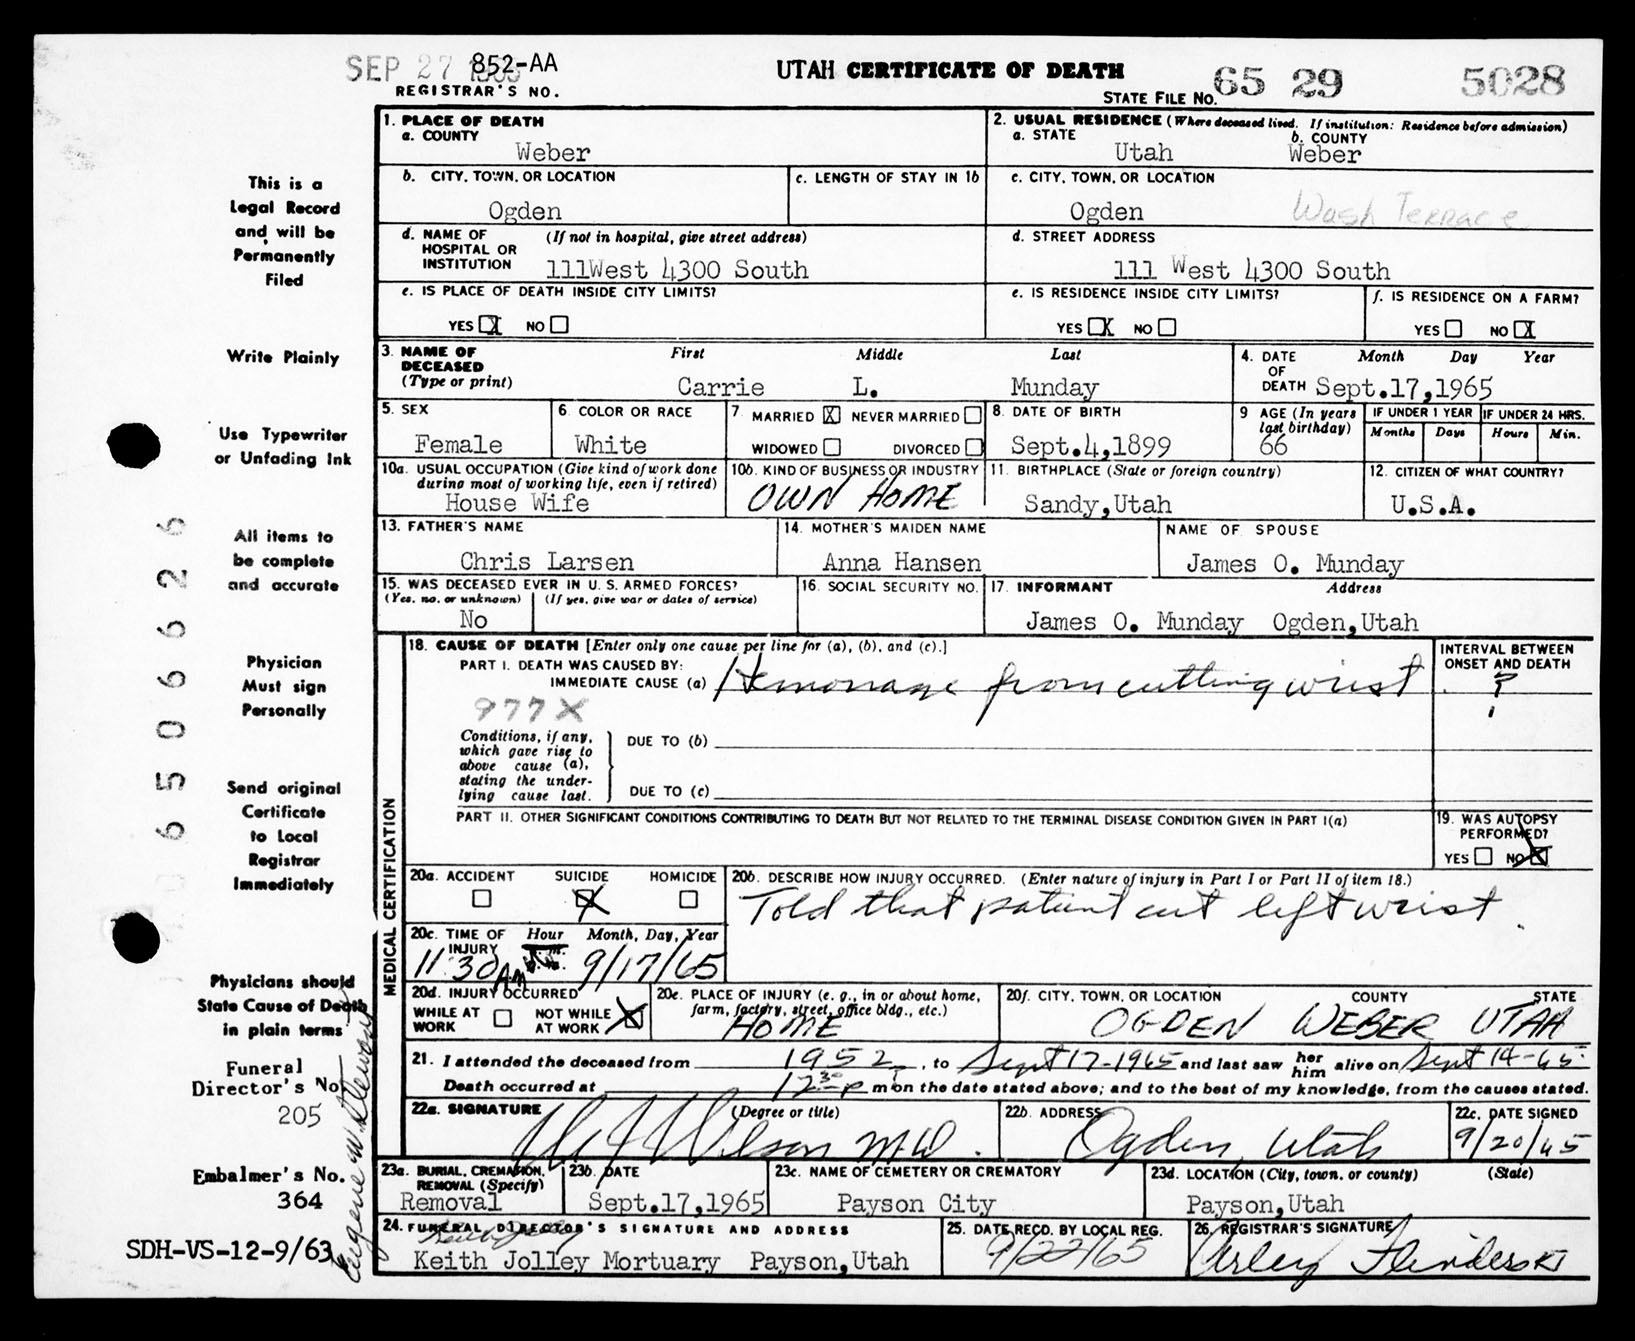 SEP 27 1965 852-AA
REGISTRAR'S NO.
UTAH CERTIFICATE OF DEATH
STATE FILE NO. 65 29 5028
This is a
Legal Record
and will be
Permanently
Filed
Write Plainly
Use Typewriter
or Unfading Ink
All items to
be complete
and accurate
Physician
Must sign
Personally
Send original
Certificate
to Local
Registrar
Immediately
Physicians should
State Cause of Death
in plain terms
Funeral
Director's No.
205
Embalmer's No.
364
SDH-VS-12-9/63
Eugene W. Stewart
6506626
1. PLACE OF DEATH
a. COUNTY
Weber
2. USUAL RESIDENCE (Where deceased lived. If institution: Residence before admission)
a. STATE b. COUNTY
Utah Weber
b. CITY, TOWN, OR LOCATION
Ogden
c. LENGTH OF STAY IN 1b
c. CITY, TOWN, OR LOCATION
Ogden Wash Terrace
d. NAME OF (If not in hospital, give street address)
HOSPITAL OR
INSTITUTION 111West 4300 South
d. STREET ADDRESS
111 West 4300 South
e. IS PLACE OF DEATH INSIDE CITY LIMITS?
YES X NO
e. IS RESIDENCE INSIDE CITY LIMITS?
YES X NO
f. IS RESIDENCE ON A FARM?
YES NO X
3. NAME OF First Middle Last
DECEASED
(Type or print) Carrie L. Munday
4. DATE Month Day Year
OF
DEATH Sept.17,1965
5. SEX
Female
6. COLOR OR RACE
White
7 MARRIED X NEVER MARRIED
WIDOWED DIVORCED
8. DATE OF BIRTH
Sept.4,1899
9 AGE (In years
last birthday)
66
IF UNDER 1 YEAR IF UNDER 24 HRS.
Months Days Hours Min.
10a. USUAL OCCUPATION (Give kind of work done
during most of working life, even if retired)
House Wife
10b. KIND OF BUSINESS OR INDUSTRY
OWN HOME
11. BIRTHPLACE (State or foreign country)
Sandy,Utah
12. CITIZEN OF WHAT COUNTRY?
U.S.A.
13. FATHER'S NAME
Chris Larsen
14. MOTHER'S MAIDEN NAME
Anna Hansen
NAME OF SPOUSE
James O. Munday
15. WAS DECEASED EVER IN U. S. ARMED FORCES?
(Yes, no, or unknown) (If yes, give war or dates of service)
No
16. SOCIAL SECURITY NO.
17. INFORMANT Address
James O. Munday Ogden,Utah
MEDICAL CERTIFICATION
18. CAUSE OF DEATH [Enter only one cause per line for (a), (b), and (c).]
PART I. DEATH WAS CAUSED BY:
IMMEDIATE CAUSE (a) Hemorrage from cutting wrist
INTERVAL BETWEEN
ONSET AND DEATH
?
977X
Conditions, if any,
which gave rise to
above cause (a),
stating the under-
lying cause last.
DUE TO (b)
DUE TO (c)
PART II. OTHER SIGNIFICANT CONDITIONS CONTRIBUTING TO DEATH BUT NOT RELATED TO THE TERMINAL DISEASE CONDITION GIVEN IN PART I(a)
19. WAS AUTOPSY
PERFORMED?
YES NO X
20a. ACCIDENT SUICIDE HOMICIDE
X
20b. DESCRIBE HOW INJURY OCCURRED. (Enter nature of injury in Part I or Part II of item 18.)
Told that patient cut left wrist.
20c. TIME OF Hour Month, Day, Year
INJURY
11:30 AM 9/17/65
20d. INJURY OCCURRED
WHILE AT NOT WHILE
WORK AT WORK X
20e. PLACE OF INJURY (e. g., in or about home,
farm, factory, street, office bldg., etc.)
HOME
20f. CITY, TOWN, OR LOCATION COUNTY STATE
OGDEN WEBER UTAH
21. I attended the deceased from 1952, to Sept 17-1965 and last saw her him alive on Sept 14-65
Death occurred at 12 30 p m on the date stated above; and to the best of my knowledge, from the causes stated.
22a. SIGNATURE (Degree or title)
Wilson M.D.
22b. ADDRESS
Ogden, Utah
22c. DATE SIGNED
9/20/65
23a. BURIAL, CREMATION,
REMOVAL (Specify)
Removal
23b. DATE
Sept.17,1965
23c. NAME OF CEMETERY OR CREMATORY
Payson City
23d. LOCATION (City, town, or county) (State)
Payson,Utah
24. FUNERAL DIRECTOR'S SIGNATURE AND ADDRESS
Keith Jolley
Keith Jolley Mortuary Payson,Utah
25. DATE RECD. BY LOCAL REG.
9/22/65
26. REGISTRAR'S SIGNATURE
Arley Flinders